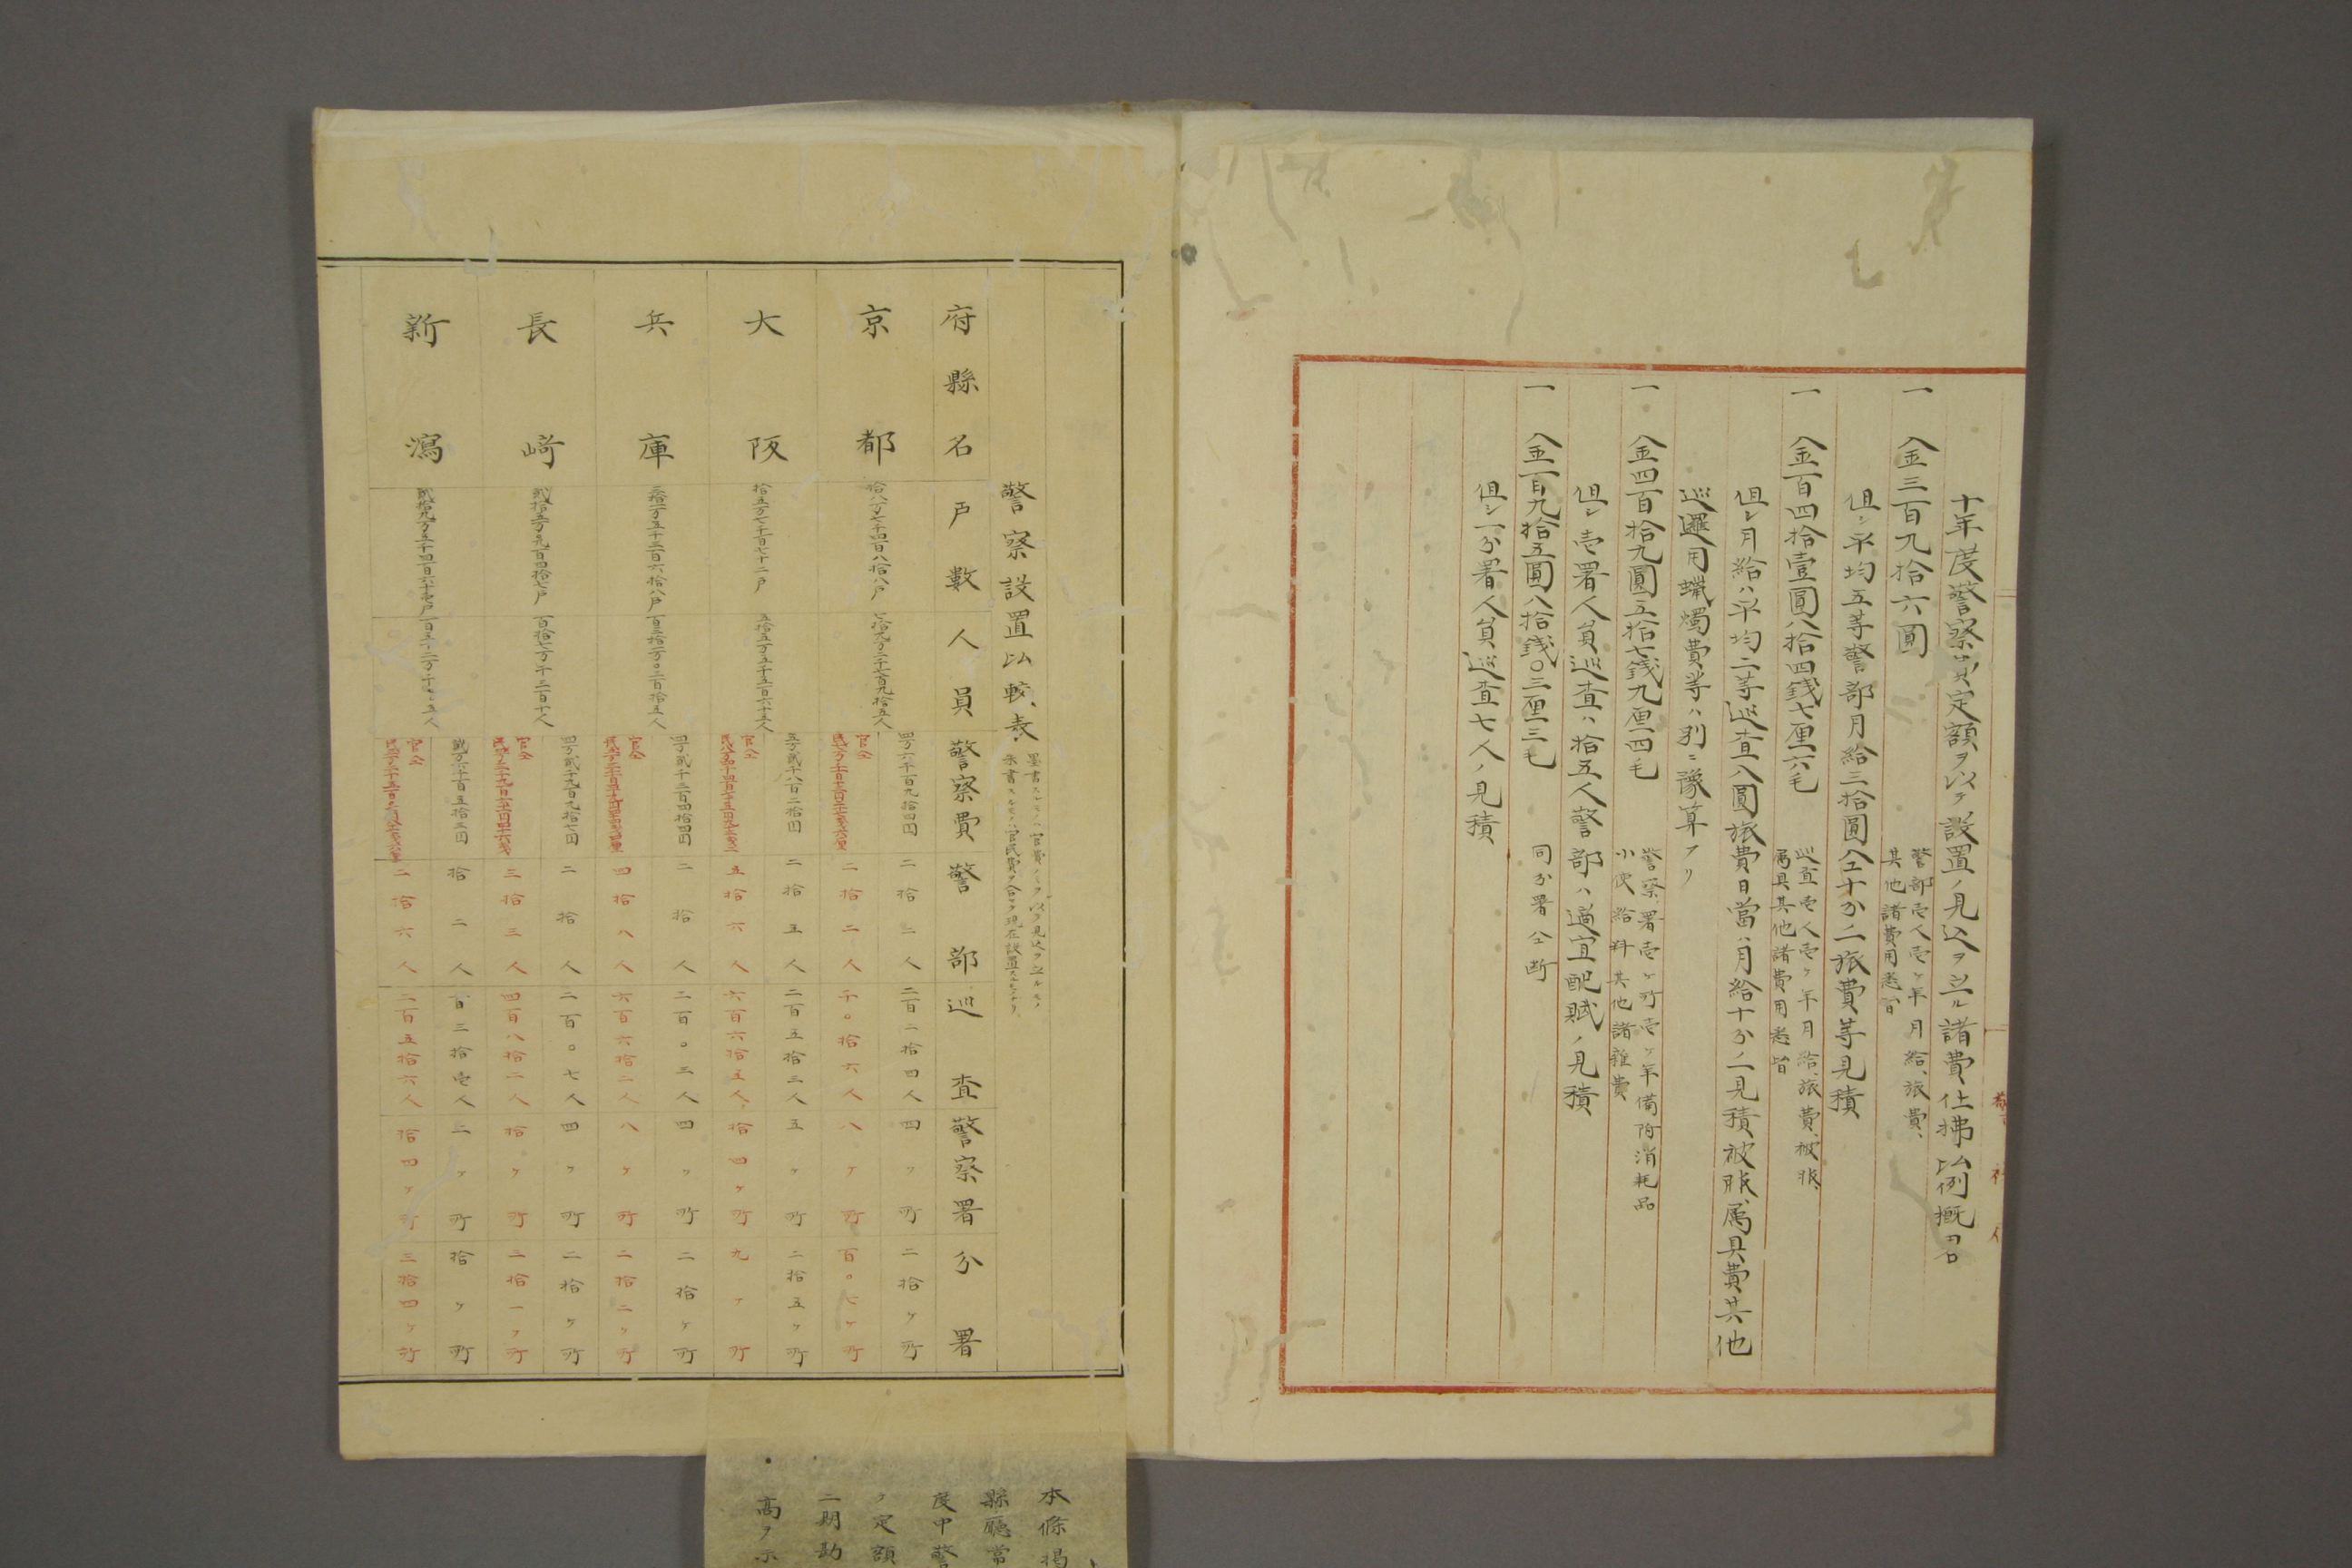 十年度警察費定額ヲ以テ設置ノ見込ヲ立ル諸費仕拂比例概畧
一 金三百九拾六圓 警部壱人壱ヶ年月給、旅費、
其他諸費用悉皆
但シ平均五等警部月給三拾圓全十分ノ二旅費等見積
一 金百四拾壹圓八拾四錢七厘六毛 巡査壱人壱ヶ年月給、旅費、被服、
属具其他諸費用悉皆
但シ月給ハ平均二等巡査八圓旅費日當ハ月給十分ノ二見積被服属具費其他
巡邏用蠟燭費等ハ別ニ豫算アリ
一 金四百拾九圓五拾七錢九厘四毛 警察署壱ヶ所壱ヶ年備附消耗品
小使給料其他諸雜費
但シ壱署人員巡査ハ拾五人警部ハ適宜配賦ノ見積
一 金百九拾五圓八拾錢〇三厘三毛 同分署仝断
但シ一分署人員巡査七人ノ見積
警察設置比較表
墨書スルモノハ官費ノミヲ以テ見込ヲ立ルモノ
朱書スルモノハ官民費ヲ合セテ現在設置スルモノナリ
府縣名 戸數 人員 警察費 警部 巡査 警察署 分署
京都 拾八万七千四百八拾八戸 七拾九万二千七百九拾五人
四万六千百九拾四円 二拾二人 二百二拾四人 四ヶ所 二拾ヶ所
官民仝 二拾二人 千〇拾六人 八ヶ所 百〇七ヶ所
大阪 拾五万七千百七十二戸 五拾五万五千五百六十五人
五万貳千八百二拾円 二拾五人 二百五拾三人 五ヶ所 二拾五ヶ所
官民仝 五拾六人 六百六拾五人 拾四ヶ所 九ヶ所
兵庫 三拾一万五千三百六拾八戸 百三拾一万〇二百拾五人
四万貳千二百四拾四円 二拾人 二百〇三人 四ヶ所 二拾ヶ所
官民仝 四拾八人 六百六拾二人 八ヶ所 二拾二ヶ所
長﨑 貳拾五万〇九百四拾七戸 百拾七万千三百十人
四万貳千九百九拾七円 二拾人 二百〇七人 四ヶ所 二拾ヶ所
官民仝 三拾三人 四百八拾二人 拾ヶ所 二拾一ヶ所
新瀉 貳拾九万三千四百六十壱戸
貳万六千百五拾三円 拾二人 百三拾壱人 二ヶ所 拾ヶ所
官民仝 二拾六人 二百五拾六人 拾四ヶ所 三拾四ヶ所
本條掲
縣廳當
度中警
ノ定額
二期勘
高ヲ示